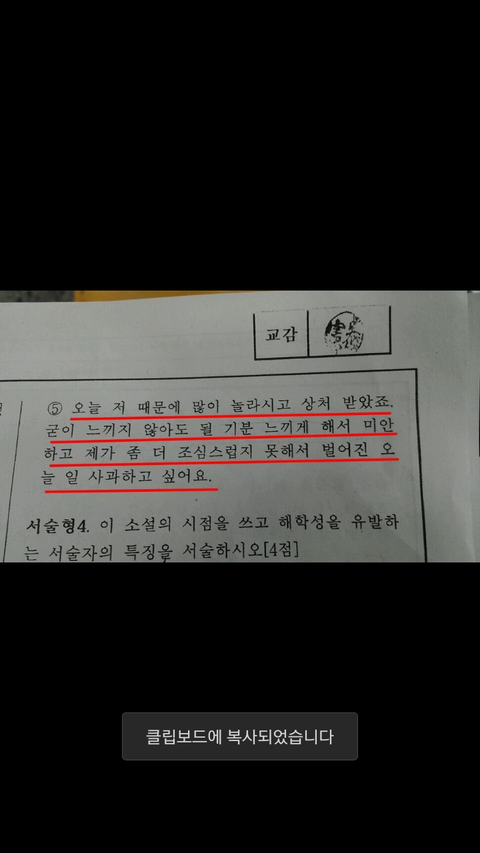 교감
⑤ 오늘 저 때문에 많이 놀라시고 상처 받았죠.
굳이 느끼지 않아도 될 기분 느끼게 해서 미안
하고 제가 좀 더 조심스럽지 못해서 벌어진 오
늘 일 사과하고 싶어요.
서술형4. 이 소설의 시점을 쓰고 해학성을 유발하
는 서술자의 특징을 서술하시오[4점]
클립보드에 복사되었습니다